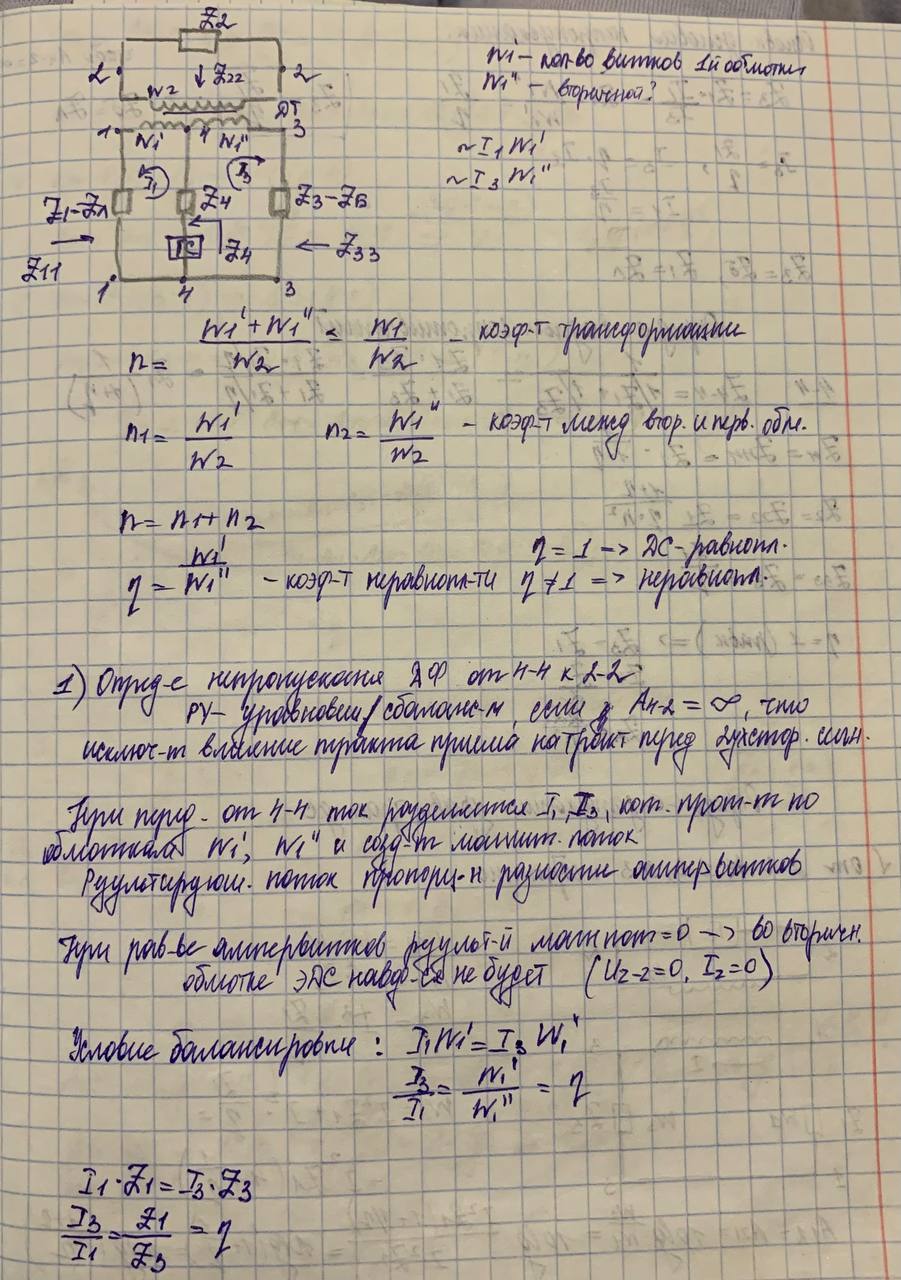 Z2
2 ↓ Z22 2
W2
ДТ
1 W1' 4 W1" 3
I1 I3
Z1-Zл Z4 Z3-Zб
ГС Z4 ← Z33
→ Z11
1 4 3
W1 - кол-во витков 1й обмотки
W1" - вторичной?
~I1 W1'
~I3 W1"
n = (W1' + W1")/W2 = W1/W2 - коэф-т трансформации
n1 = W1'/W2 n2 = W1"/W2 - коэф-т межд втор. и перв. обм.
n = n1 + n2
η = 1 -> ДС-равнопл.
η = W1'/W1" - коэф-т неравнопл-ти η ≠ 1 => неравнопл.
1) Опред-е непропускания ДФ от 4-4 к 2-2
РУ- уравновеш/сбаланс-м, если A4-2 = ∞, что
исключ-т влияние тракта приема на тракт перед 2ухстор. сигн.
При перед. от 4-4 ток разделяется I1, I3, кот. прот-т по
обмоткам W1', W1" и созд-т магнит. поток
Результирующ. поток пропорц-н разности ампервитков
При рав-ве ампервитков результ-й магн пот=0 -> во вторичн.
обмотке ЭДС навод-ся не будет (U2-2=0, I2=0)
Условие балансировки: I1W1' = I3 W1"
I3/I1 = W1'/W1" = η
I1·Z1 = I3·Z3
I3/I1 = Z1/Z3 = η